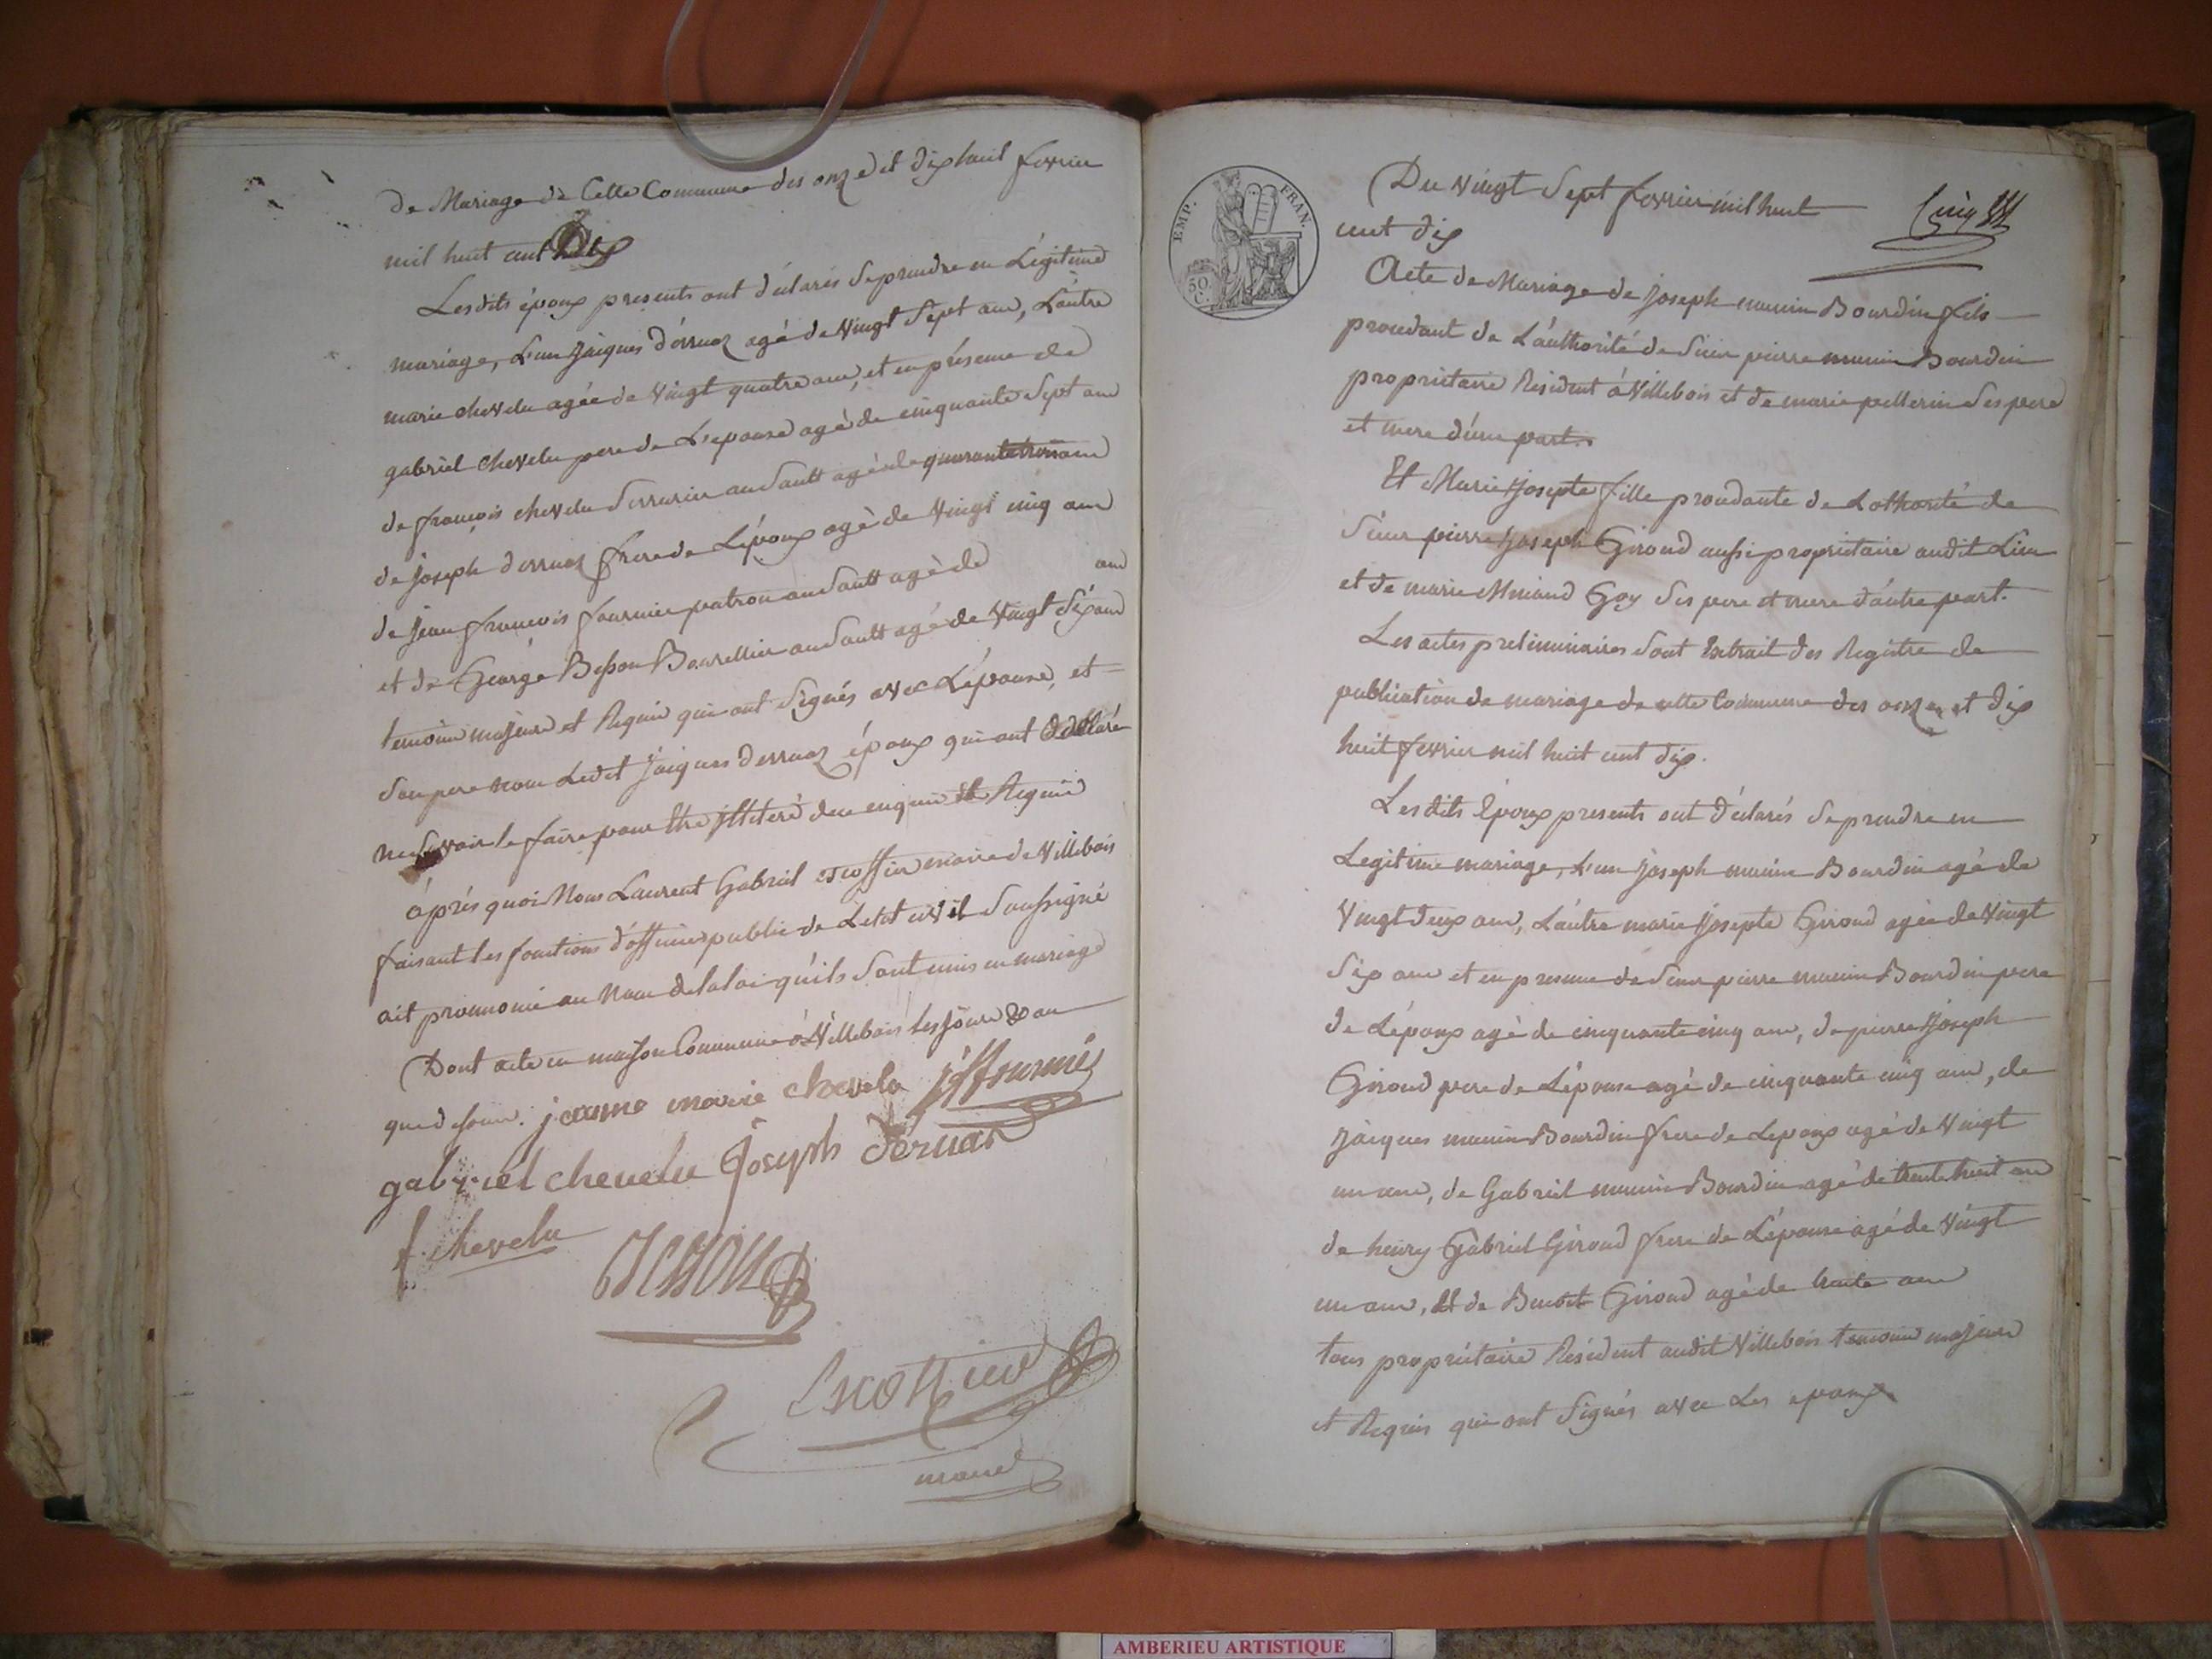 de Mariage de Cette Commune des onze et dix huit fevrier
mil huit cent dix
Les dits époux presents ont déclarés se prendre en Légitime
mariage, L'un Jacques dérruaz agé de vingt Sept ans, L'autre
marie chevelu agée de vingt quatre ans, et en présence de
gabriel chevelu pere de L'epouse agé de cinquante Sept ans
de françois chevelu Serrurier au Sault agé de quarante trois ans
de Joseph derruaz frere de L'époux agé de vingt cinq ans
de Jean françois fournier patron au Sault agé de ans
et de George Besson Bourellier au Sault agé de vingt Six ans
temoins majeurs et Requis qui ont Signés avec L'épouse, et
Son pere non Ledit Jacques derruaz époux qui ont déclaré
ne Savoir le faire pour être illiteré de ce enquis et Requis
après quoi Nous Laurent Gabriel escoffier maire de Villebois
faisant les fonctions d'officier public de L'etat civil Soussigné
ait prononcé au Nom de la loi qu'ils Sont unis en mariage
Dont acte en maison Commune à Villebois les jour & an
que dessus. jeanne marie chevelu jffournié
gabriel chevelu Joseph Déruaz
f. chevelu Besson
Escoffier
maire
EMP. FRAN.
50 C.
Du vingt Sept fevrier mil huit
cent dix
Acte de Mariage de Joseph munin Bourdin fils
procedant de L'authorité de Sieur pierre munin Bourdin
propriétaire Résident à Villebois et de marie pellerin Ses pere
et mere d'une part.
Et Marie Josepte fille procedante de L'athorité de
Sieur pierre Joseph Giroud aussi propriétaire audit Lieu
et de marie Goy Ses pere et mere d'autre part.
Les actes preliminaires Sont Extrait des Registre de
publication de mariage de cette Commune des onze et dix
huit fevrier mil huit cent dix.
Les dits Epoux presents ont déclarés Se prendre en
Legitime mariage, L'un Joseph munin Bourdin agé de
vingt deux ans, L'autre marie Josepte Giroud agée de vingt
Six ans et en presence de Sieur pierre munin Bourdin pere
de L'époux agé de cinquante cinq ans, de pierre Joseph
Giroud pere de L'épouse agé de cinquante cinq ans, de
Jacques munin Bourdin frere de L'epoux agé de vingt
un ans, de Gabriel munin Bourdin agé de trente huit ans
de henry Gabriel Giroud frere de L'épouse agé de vingt
un ans, Et de Benoit Giroud agé de trente ans
tous propriétaire Résident audit Villebois temoins majeurs
et Requis qui ont Signés avec Les epoux
AMBERIEU ARTISTIQUE